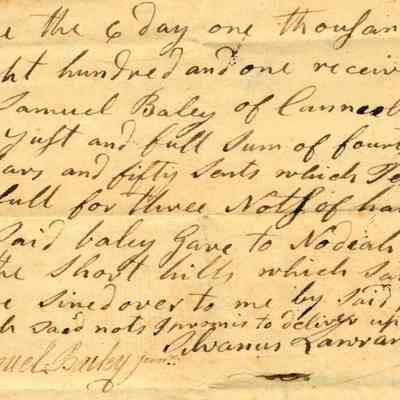 e the 6 day one thousan
ht hundred and one receiv
Samuel Baley of Connect
Just and full sum of four
lars and fifty sents which
full for three Nots of han
said baley Gave to Nodiah
the Short hills which sa
e sined over to me by said
h said nots I promis to deliver up
Silvanus Lawran
muel Baley